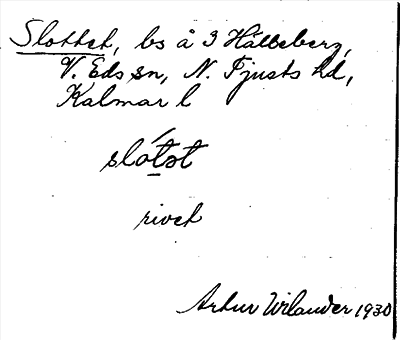 Slottet, bs å 3 Hälleberg,
V. Eds sn, N. Tjusts hd,
Kalmar l
slótət
rivet
Artur Wilander 1930